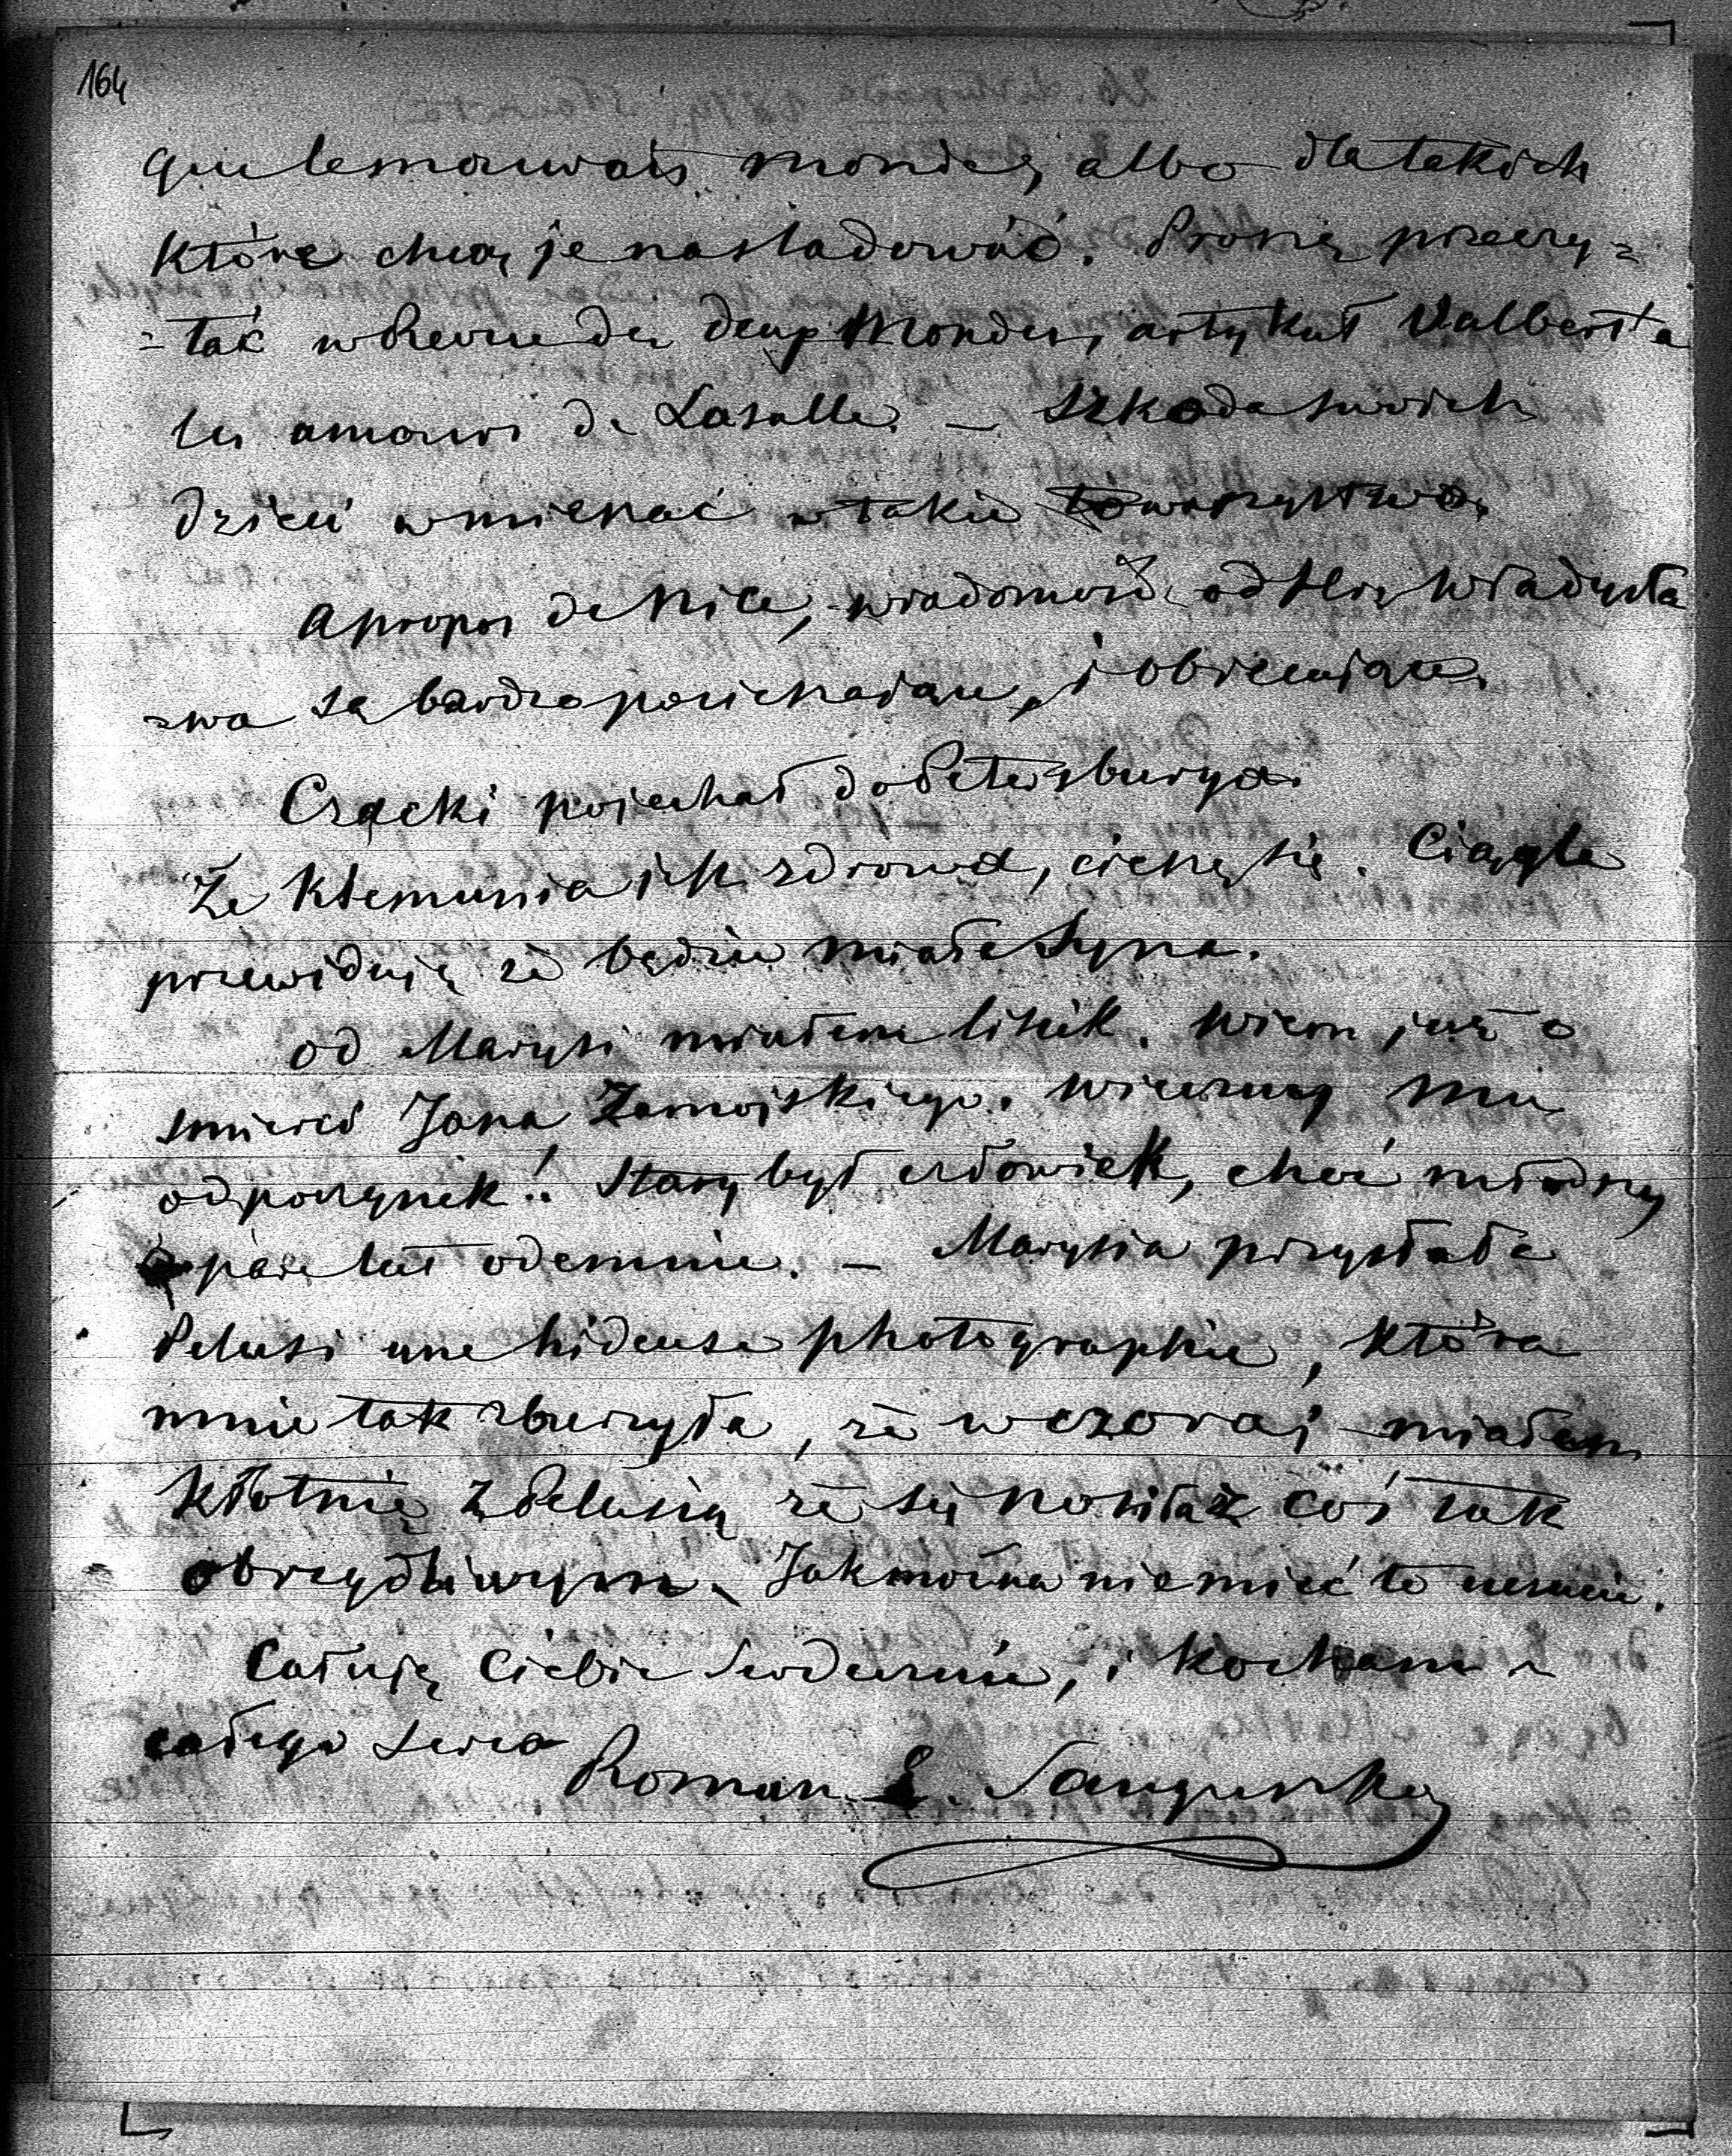 164
que le mauvais monde, albo dla takich
które chcą je nasladować. Proszę przeczy=
=tać w Revue des deux Mondes, artykuł Valberta
les amours de Lasalle. – Szkoda swoich
dzieci wmieszać w takie towarzystwo.
Apropos de Nice, wiadomość od Hr. Władysła
=wa są bardzo pocieszające, i obiecujące.
Czacki pojechał do Petersburga.
Że Klemunia jest zdrowa, cieszę się. Ciągle
przewiduję że będzie miała Syna.
od Marysi miałem liścik. Wiem już o
smierci Jana Zamojskiego. Wieczny mu
odpoczynek!. Stary był człowiek, choć młodszy
o parę lat odemnie. – Marysia przysłała
Pelusi une hideuse photographie, która
mnie tak zburzyła, że wczoraj miałem
kłótnię z Pelusią że się nosiła z coś tak
obrzydliwym. Jak można nie mieć to uczucie.
Całuję Ciebie serdecznie, i kocham z
całego serca
Roman S. Sanguszko